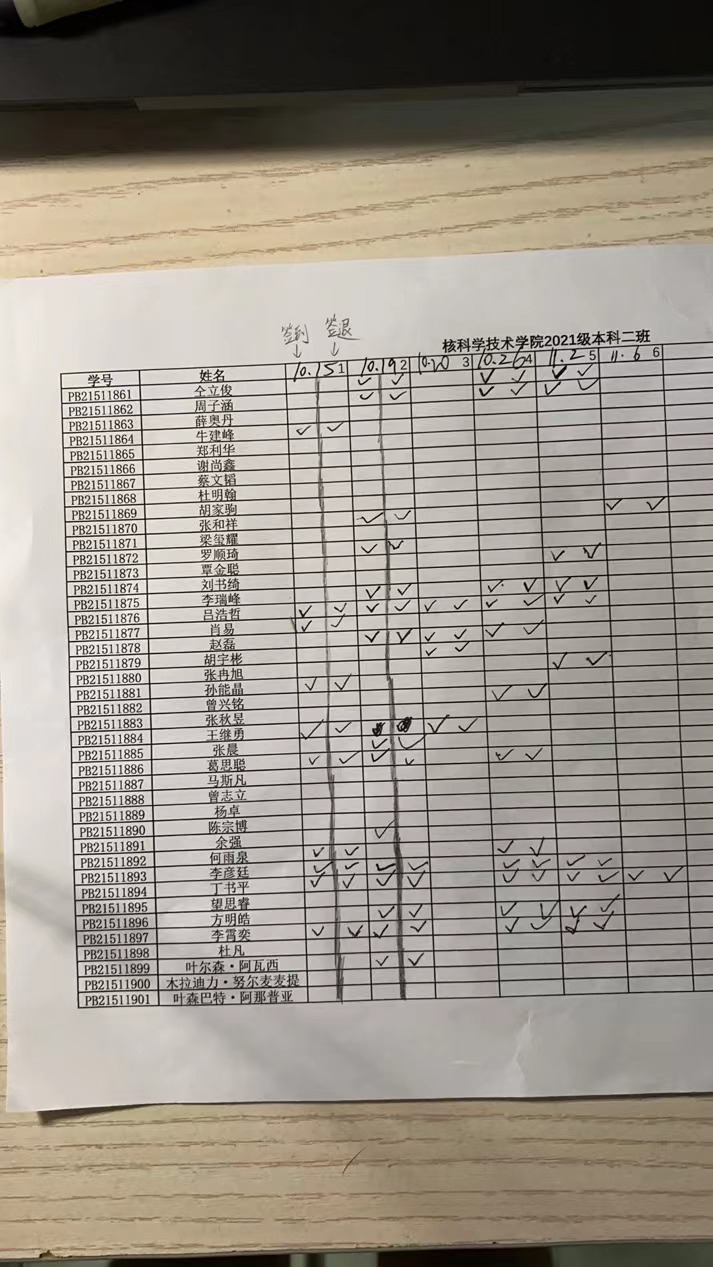 签到 签退
↓ ↓
核科学技术学院2021级本科二班
学号 姓名 10.15 1 10.19 2 10.20 3 10.26 4 11.2 5 11.6 6
PB21511861 仝立俊 ✓ ✓ ✓ ✓ ✓ ✓
PB21511862 周子涵 ✓ ✓ ✓ ✓ ✓ ✓
PB21511863 薛奥丹
PB21511864 牛建峰 ✓ ✓
PB21511865 郑利华
PB21511866 谢尚鑫
PB21511867 蔡文韬
PB21511868 杜明翰
PB21511869 胡家驹 ✓ ✓
PB21511870 张和祥 ✓ ✓
PB21511871 梁玺耀
PB21511872 罗顺琦 ✓ ✓ ✓ ✓
PB21511873 覃金聪
PB21511874 刘书绮 ✓ ✓ ✓ ✓
PB21511875 李瑞峰 ✓ ✓ ✓ ✓
PB21511876 吕浩哲 ✓ ✓ ✓ ✓ ✓ ✓ ✓ ✓
PB21511877 肖易 ✓ ✓
PB21511878 赵磊 ✓ ✓ ✓ ✓ ✓ ✓
PB21511879 胡宇彬 ✓ ✓
PB21511880 张冉旭 ✓ ✓
PB21511881 孙能晶 ✓ ✓
PB21511882 曾兴铭 ✓ ✓
PB21511883 张秋昱
PB21511884 王继勇 ✓ ✓ ✓ ✓
PB21511885 张晨 ✓ ✓
PB21511886 葛思聪 ✓ ✓ ✓ ✓ ✓ ✓
PB21511887 马斯凡
PB21511888 曾志立
PB21511889 杨卓
PB21511890 陈宗博 ✓
PB21511891 余强
PB21511892 何雨泉 ✓ ✓ ✓ ✓
PB21511893 李彦廷 ✓ ✓ ✓ ✓ ✓ ✓ ✓ ✓
PB21511894 丁书平 ✓ ✓ ✓ ✓ ✓ ✓ ✓ ✓ ✓ ✓
PB21511895 望思睿
PB21511896 方明皓 ✓ ✓ ✓ ✓ ✓ ✓
PB21511897 李霄奕 ✓ ✓ ✓ ✓ ✓ ✓ ✓ ✓
PB21511898 杜凡
PB21511899 叶尔森·阿瓦西 ✓ ✓
PB21511900 木拉迪力·努尔麦麦提
PB21511901 叶森巴特·阿那普亚